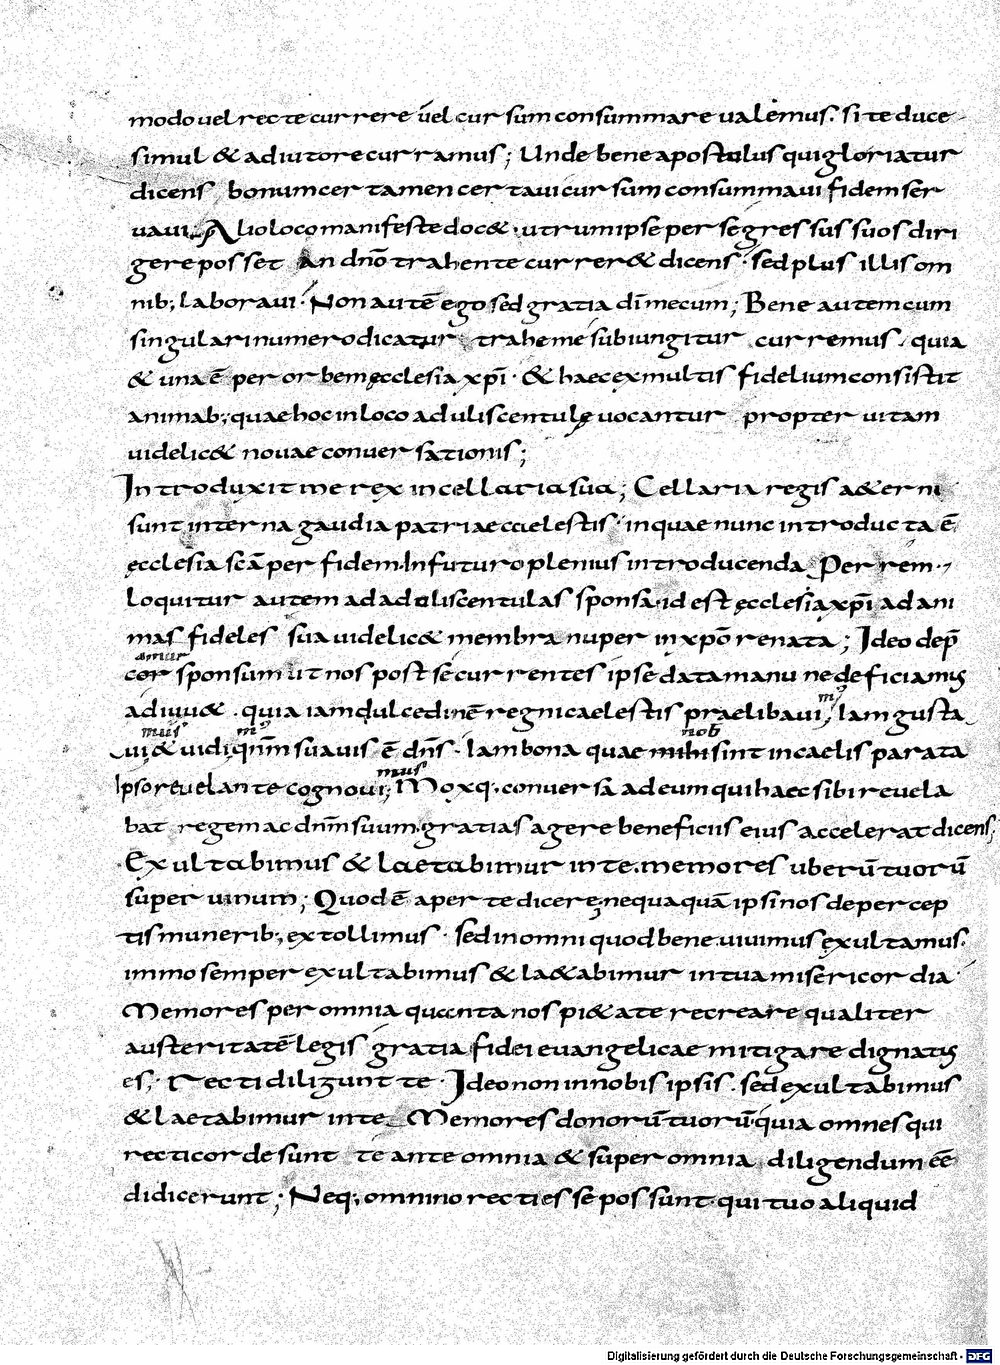 modo uel recte currere uel cursum consummare ualemus. si te duce
simul & adiutore curramus; Unde bene apostolus qui gloriatur
dicens bonum certamen certaui cursum consummaui fidem ser
uaui. Alio loco manifeste doc& · utrum ipse per se gressus suos diri
gere posset An dño trahente currer& dicens · sed plus illis om
nib; laboraui · Non autē ego sed gratia dī mecum; Bene autem cum
singulari numero dicatur trahe me subiungitur curremus · quia
& una ē per orbem ęcclesia xpī · & haec ex multis fidelium consistit
animab; quae hoc in loco aduliscentulę uocantur propter uitam
uidelic& nouae conuersationis;
Introduxit me rex in cellaria sua; Cellaria regis a&erni
sunt interna gaudia patriae caelestis · in quae nunc introducta ē
ęcclesia scā per fidem. In futuro plenius introducenda Per rem
loquitur autem ad adoliscentulas sponsa. id est ęcclesia xpī ad ani
mas fideles sua uidelic& membra nuper in xpō renata; Ideo dep̄
amur
cor sponsum ut nos post se currentes ipse data manu ne deficiamus
adiuu& · quia iam dulcedinē regni caelestis praelibaui; Iam gusta
mus nob
ui & uidi qm̄ suauis ē dn̄s · Iam bona quae mihi sint in caelis parata
mus
Ipso reuelante cognoui; Moxq; conuersa ad eum qui haec sibi reuela
bat regem ac dn̄m suum. gratias agere beneficiis eius accelerat dicens;
Exultabimus & laetabimur in te. memores uberū tuorū
super uinum; Quod ē aperte dicere; nequaquā ipsi nos de percep
tis munerib; extollimus · sed in omni quod bene uiuimus exultamus.
immo semper exultabimus & la&abimur in tua misericordia
Memores per omnia quanta nos pi&ate recreare qualiter
austeritatē legis gratia fidei euangelicae mitigare dignatus
es; Recti diligunt te · Ideo non in nobis ipsis. sed exultabimus
& laetabimur in te Memores donorū tuorū. quia omnes qui
recti corde sunt te ante omnia & super omnia diligendum eē
didicerunt; Neq; omnino recti esse possunt. qui tuo aliquid
Digitalisierung gefördert durch die Deutsche Forschungsgemeinschaft - DFG